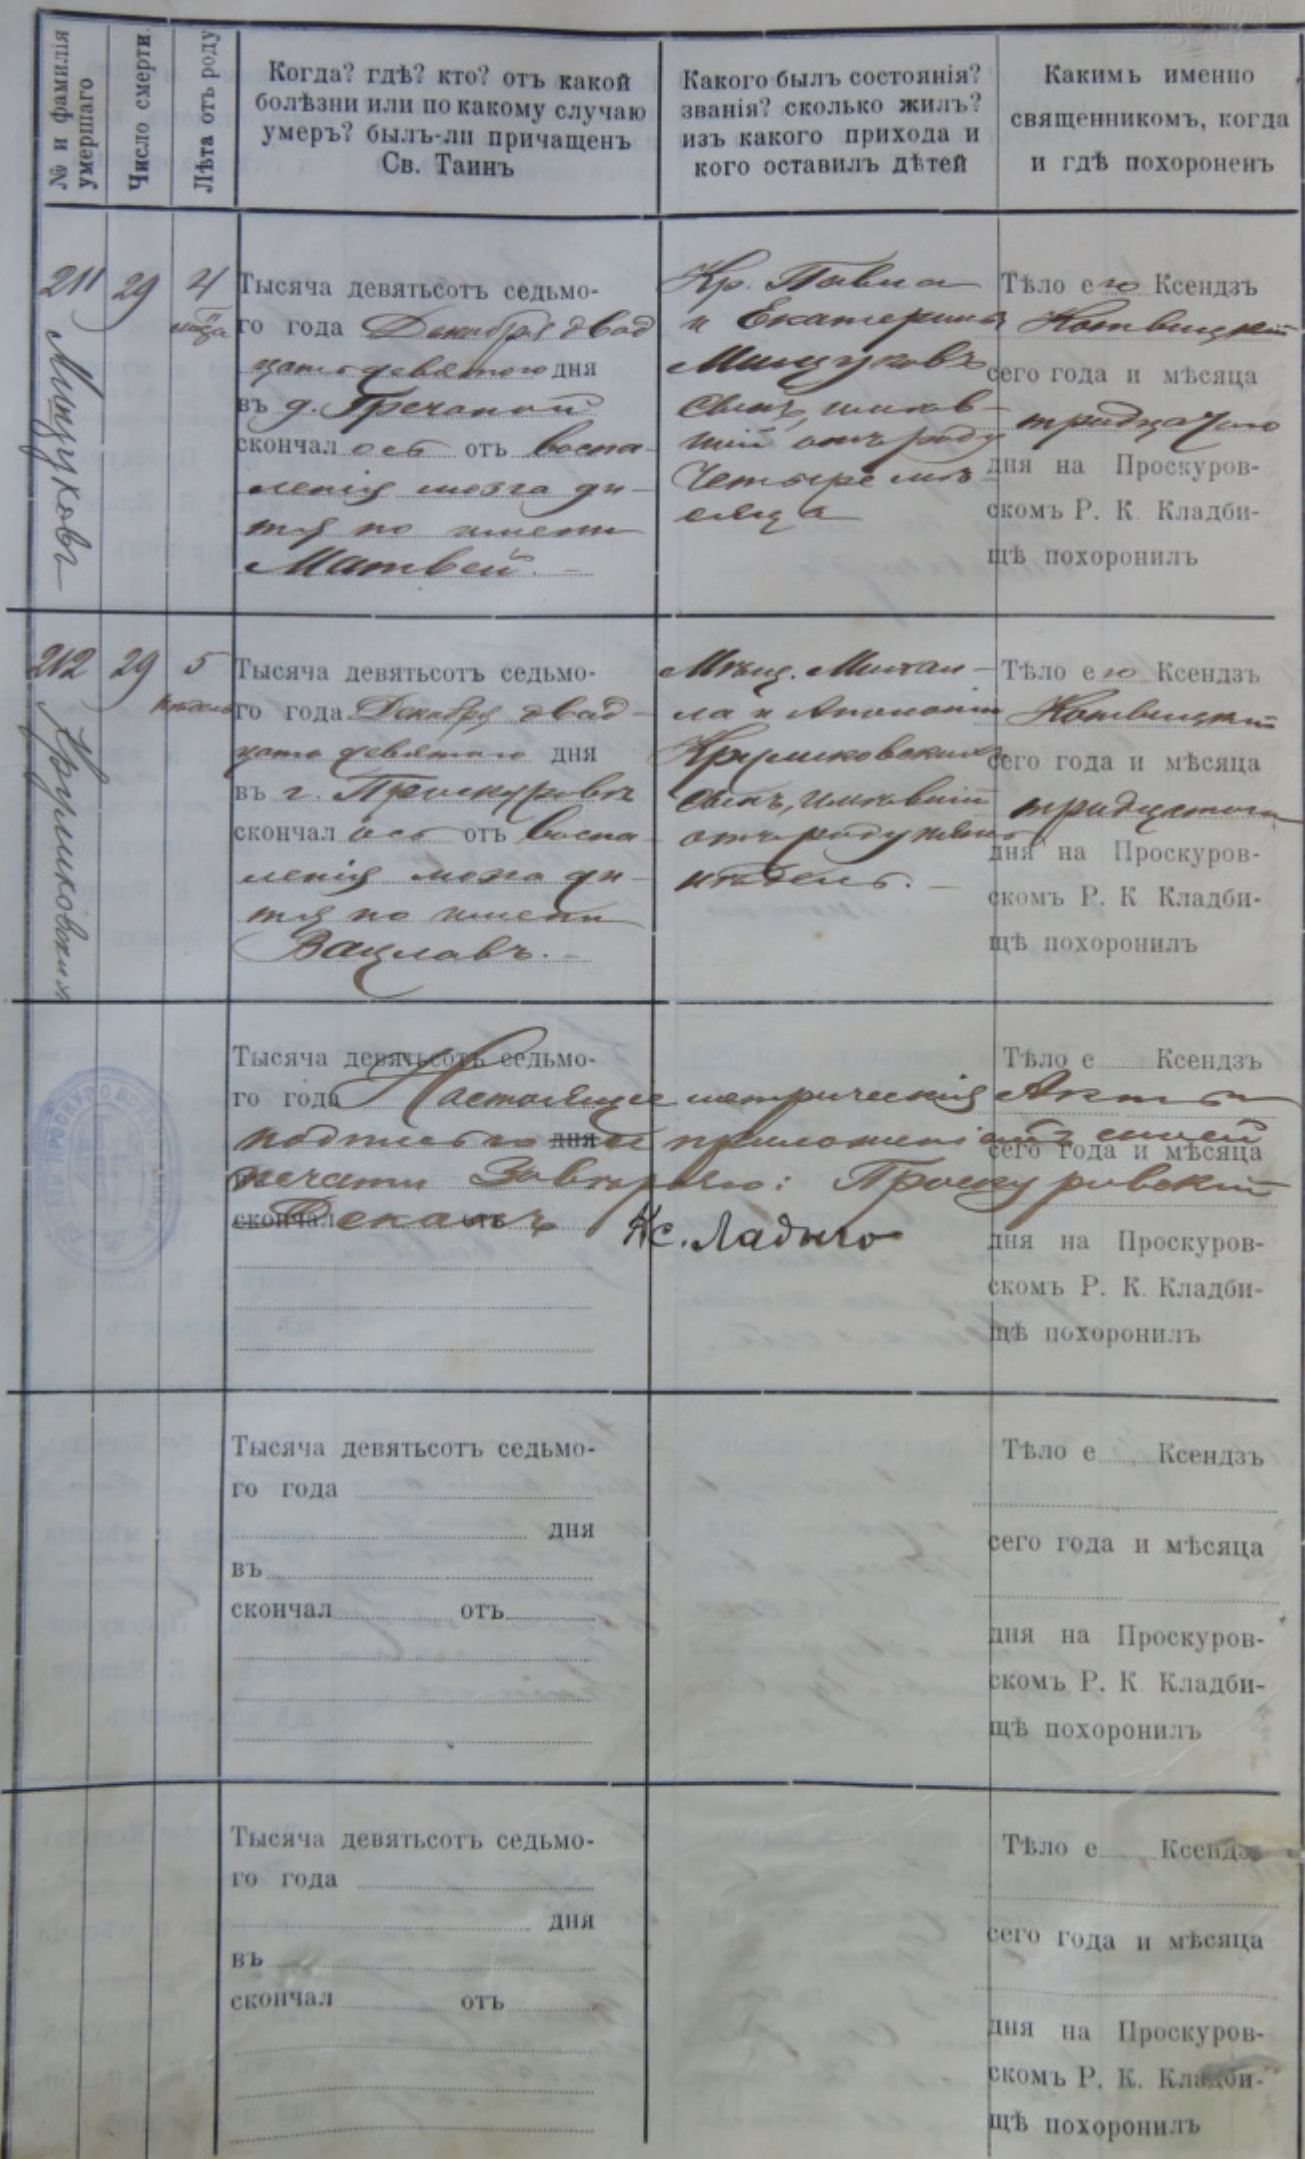 № и фамилія
умершаго
Число смерти.
Лѣта отъ роду
Когда? гдѣ? кто? отъ какой
болѣзни или по какому случаю
умеръ? былъ-ли причащенъ
Св. Таинъ
Какого былъ состоянія?
званія? сколько жилъ?
изъ какого прихода и
кого оставилъ дѣтей
Какимъ именно
священникомъ, когда
и гдѣ похороненъ
211
Мищуковъ
29
4
мѣс̃ца
Тысяча девятьсотъ седьмо-
го года Декабря двад
цать девятого дня
въ д. Гречаной
скончался отъ воспа-
ленія мозга ди-
тя по имени
Матвей. –
Кр. Павла
и Екатерины
Мищуковъ
сынъ, имѣв-
шій отъ роду
Четыре мѣ-
сяца
Тѣло его Ксендзъ
Котвицкій
сего года и мѣсяца
тридцатого
дня на Проскуров-
скомъ Р. К. Кладби-
щѣ похоронилъ
212
Крулиховскихъ
29
5
недель
Тысяча девятьсотъ седьмо-
го года Декабря двад-
цать девятого дня
въ г. Проскуровѣ
скончался отъ воспа-
ленія мозга ди-
тя по имени
Вацлавъ. –
Мѣщ. Михаи-
ла и Аполоніи
сынъ, имѣвшій
отъ роду пять
недель. –
Тѣло его Ксендзъ
Котвицкій
сего года и мѣсяца
тридцатого
дня на Проскуров-
скомъ Р. К Кладби-
щѣ похоронилъ
Тысяча девятьсотъ седьмо-
го года
дня
скончал отъ
Настоящіе метрическія Акты
подписью и приложеніемъ
печати Завѣряю: Проскуровскій
Деканъ Кс. Ладыго
Тѣло е Ксендзъ
сего года и мѣсяца
дня на Проскуров-
скомъ Р. К. Кладби-
щѣ похоронилъ
Тысяча девятьсотъ седьмо-
го года
дня
въ
скончал отъ
Тѣло е Ксендзъ
сего года и мѣсяца
дня на Проскуров-
скомъ Р. К Кладби-
щѣ похоронилъ
Тысяча девятьсотъ седьмо-
го года
дня
въ
скончал отъ
Тѣло е Ксендзъ
сего года и мѣсяца
дня на Проскуров-
скомъ Р. К. Кладби-
щѣ похоронилъ